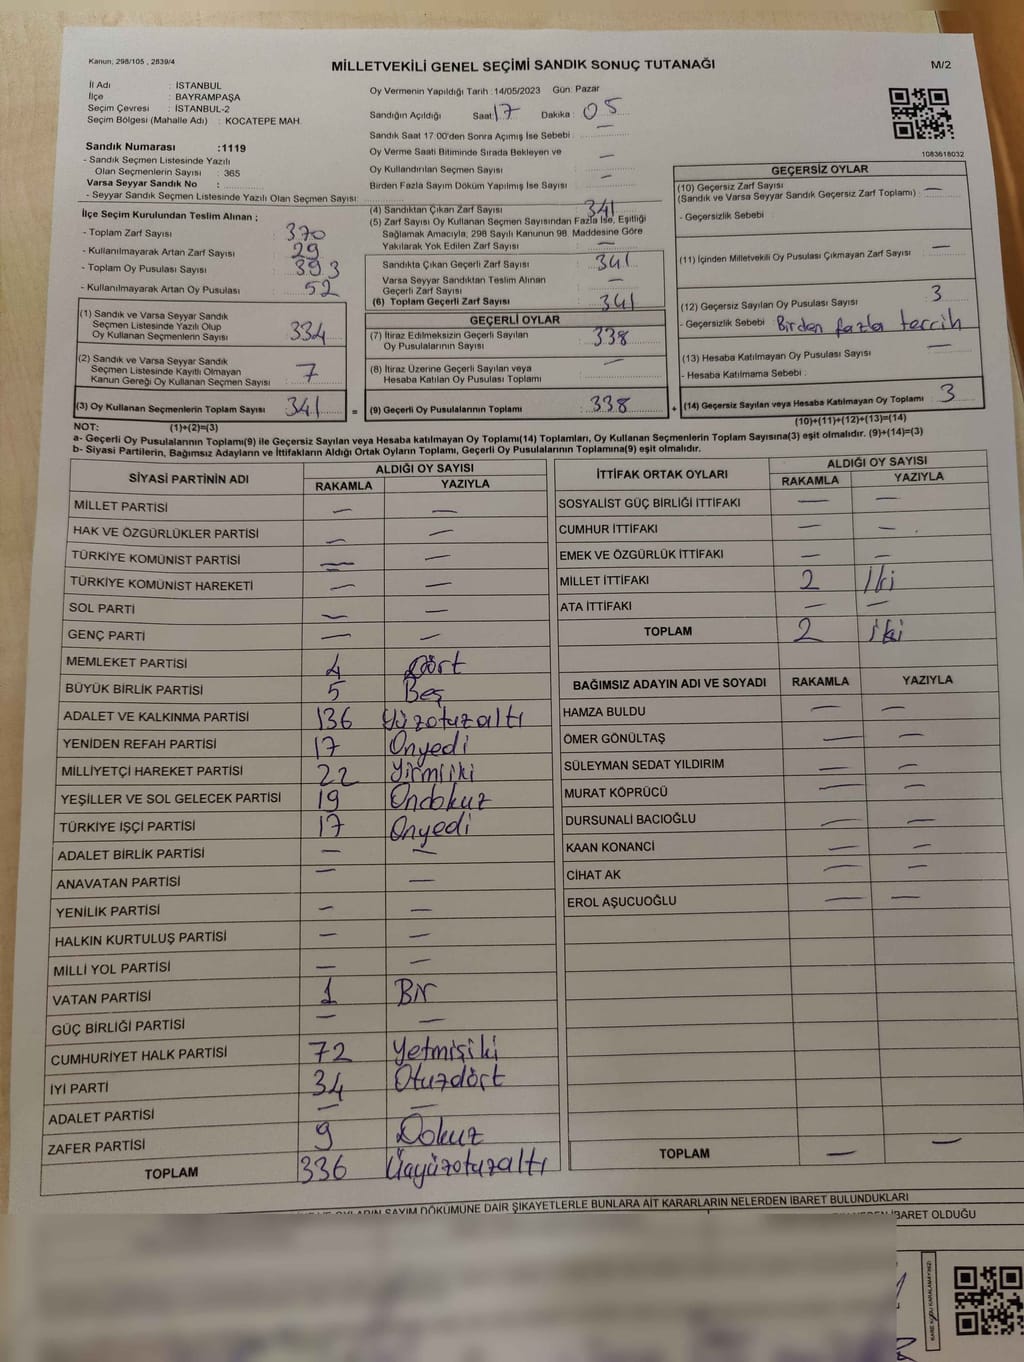 Kanun, 298/105 , 2839/4
MİLLETVEKİLİ GENEL SEÇİMİ SANDIK SONUÇ TUTANAĞI
M/2
İl Adı : İSTANBUL
İlçe : BAYRAMPAŞA
Seçim Çevresi : İSTANBUL-2
Seçim Bölgesi (Mahalle Adı) : KOCATEPE MAH.
Sandık Numarası :1119
- Sandık Seçmen Listesinde Yazılı
Olan Seçmenlerin Sayısı : 365
Varsa Seyyar Sandık No :
- Seyyar Sandık Seçmen Listesinde Yazılı Olan Seçmen Sayısı:
Oy Vermenin Yapıldığı Tarih : 14/05/2023 Gün: Pazar
Sandığın Açıldığı Saat: 17 Dakika : 05
Sandık Saat 17:00'den Sonra Açımış İse Sebebi : —
Oy Verme Saati Bitiminde Sırada Bekleyen ve
Oy Kullandırılan Seçmen Sayısı : —
Birden Fazla Sayım Döküm Yapılmış İse Sayısı : —
1083618032
İlçe Seçim Kurulundan Teslim Alınan ;
- Toplam Zarf Sayısı : 370
- Kullanılmayarak Artan Zarf Sayısı : 29
- Toplam Oy Pusulası Sayısı : 393
- Kullanılmayarak Artan Oy Pusulası : 52
(1) Sandık ve Varsa Seyyar Sandık
Seçmen Listesinde Yazılı Olup
Oy Kullanan Seçmenlerin Sayısı : 334
(2) Sandık ve Varsa Seyyar Sandık
Seçmen Listesinde Kayıtlı Olmayan
Kanun Gereği Oy Kullanan Seçmen Sayısı : 7
(3) Oy Kullanan Seçmenlerin Toplam Sayısı : 341 =
(4) Sandıktan Çıkan Zarf Sayısı : 341
(5) Zarf Sayısı Oy Kullanan Seçmen Sayısından Fazla İse, Eşitliği
Sağlamak Amacıyla, 298 Sayılı Kanunun 98. Maddesine Göre
Yakılarak Yok Edilen Zarf Sayısı : —
Sandıkta Çıkan Geçerli Zarf Sayısı : 341
Varsa Seyyar Sandıktan Teslim Alınan
Geçerli Zarf Sayısı : —
(6) Toplam Geçerli Zarf Sayısı : 341
GEÇERLİ OYLAR
(7) İtiraz Edilmeksizin Geçerli Sayılan
Oy Pusulalarının Sayısı : 338
(8) İtiraz Üzerine Geçerli Sayılan veya
Hesaba Katılan Oy Pusulası Toplamı : —
(9) Geçerli Oy Pusulalarının Toplamı : 338 +
GEÇERSİZ OYLAR
(10) Geçersiz Zarf Sayısı
(Sandık ve Varsa Seyyar Sandık Geçersiz Zarf Toplamı) : —
- Geçersizlik Sebebi :
(11) İçinden Milletvekili Oy Pusulası Çıkmayan Zarf Sayısı : —
(12) Geçersiz Sayılan Oy Pusulası Sayısı : 3
- Geçersizlik Sebebi : Birden fazla tercih
(13) Hesaba Katılmayan Oy Pusulası Sayısı : —
- Hesaba Katılmama Sebebi :
(14) Geçersiz Sayılan veya Hesaba Katılmayan Oy Toplamı : 3
NOT: (1)+(2)=(3)
(10)+(11)+(12)+(13)=(14)
a- Geçerli Oy Pusulalarının Toplamı(9) ile Geçersiz Sayılan veya Hesaba katılmayan Oy Toplamı(14) Toplamları, Oy Kullanan Seçmenlerin Toplam Sayısına(3) eşit olmalıdır. (9)+(14)=(3)
b- Siyasi Partilerin, Bağımsız Adayların ve İttifakların Aldığı Ortak Oyların Toplamı, Geçerli Oy Pusulalarının Toplamına(9) eşit olmalıdır.
SİYASİ PARTİNİN ADI ALDIĞI OY SAYISI
RAKAMLA YAZIYLA
MİLLET PARTİSİ — —
HAK VE ÖZGÜRLÜKLER PARTİSİ — —
TÜRKİYE KOMÜNİST PARTİSİ — —
TÜRKİYE KOMÜNİST HAREKETİ — —
SOL PARTİ — —
GENÇ PARTİ — —
MEMLEKET PARTİSİ 4 Dört
BÜYÜK BİRLİK PARTİSİ 5 Beş
ADALET VE KALKINMA PARTİSİ 136 Yüzotuzaltı
YENİDEN REFAH PARTİSİ 17 Onyedi
MİLLİYETÇİ HAREKET PARTİSİ 22 Yirmiiki
YEŞİLLER VE SOL GELECEK PARTİSİ 19 Ondokuz
TÜRKİYE İŞÇİ PARTİSİ 17 Onyedi
ADALET BİRLİK PARTİSİ — —
ANAVATAN PARTİSİ — —
YENİLİK PARTİSİ — —
HALKIN KURTULUŞ PARTİSİ — —
MİLLİ YOL PARTİSİ — —
VATAN PARTİSİ 1 Bir
GÜÇ BİRLİĞİ PARTİSİ — —
CUMHURİYET HALK PARTİSİ 72 Yetmişiki
İYİ PARTİ 34 Otuzdört
ADALET PARTİSİ — —
ZAFER PARTİSİ 9 Dokuz
TOPLAM 336 Üçyüzotuzaltı
İTTİFAK ORTAK OYLARI ALDIĞI OY SAYISI
RAKAMLA YAZIYLA
SOSYALİST GÜÇ BİRLİĞİ İTTİFAKI — —
CUMHUR İTTİFAKI — —
EMEK VE ÖZGÜRLÜK İTTİFAKI — —
MİLLET İTTİFAKI 2 İki
ATA İTTİFAKI — —
TOPLAM 2 iki
BAĞIMSIZ ADAYIN ADI VE SOYADI RAKAMLA YAZIYLA
HAMZA BULDU — —
ÖMER GÖNÜLTAŞ — —
SÜLEYMAN SEDAT YILDIRIM — —
MURAT KÖPRÜCÜ — —
DURSUNALİ BACIOĞLU — —
KAAN KONANCİ — —
CİHAT AK — —
EROL AŞUCUOĞLU — —
TOPLAM — —
OYLARIN SAYIM DÖKÜMÜNE DAİR ŞİKAYETLERLE BUNLARA AİT KARARLARIN NELERDEN İBARET BULUNDUKLARI
İBARET OLDUĞU